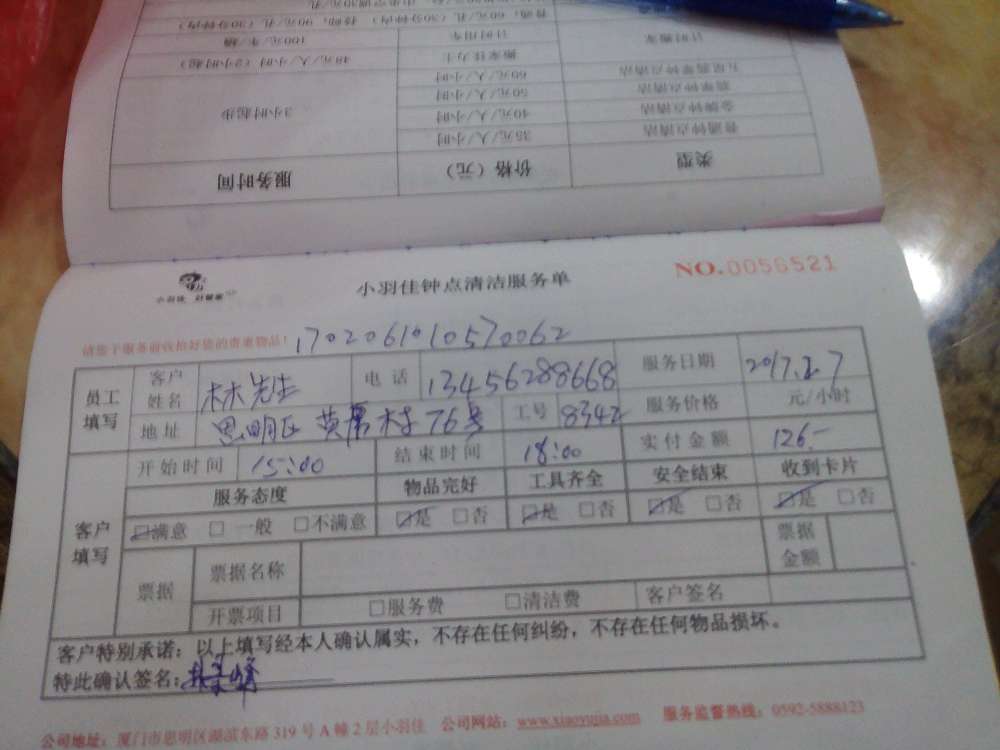 普通，60元/孔，特师，90元/孔（30分钟内）
计时搬家 计时用车 100元/车/趟
搬家佳力士 48元/人/小时（2小时起）
五星翡翠钟点清洁 60元/人/小时
翡翠钟点清洁 50元/人/小时
金牌钟点清洁 40元/人/小时 3小时起步
普通钟点清洁 35元/人/小时
类型 价格（元） 服务时间
小羽佳 好管家
小羽佳钟点清洁服务单
NO.0056521
请您于服务前收拾好您的贵重物品！
1702061010570062
员工填写 客户姓名 林先生 电话 13456288668 服务日期 2017.2.7
地址 思明区 黄厝村76号 工号 8342 服务价格 元/小时
开始时间 15:00 结束时间 18:00 实付金额 126.-
客户填写 服务态度 物品完好 工具齐全 安全结束 收到卡片
☑满意 □一般 □不满意 ☑是 □否 ☑是 □否 ☑是 □否 ☑是 □否
票据 票据名称 票据金额
开票项目 □服务费 □清洁费 客户签名
客户特别承诺：以上填写经本人确认属实，不存在任何纠纷，不存在任何物品损坏。
特此确认签名：
公司地址：厦门市思明区湖滨东路319号A幢2层小羽佳 公司网站：www.xiaoyujia.com 服务监督热线：0592-5888123